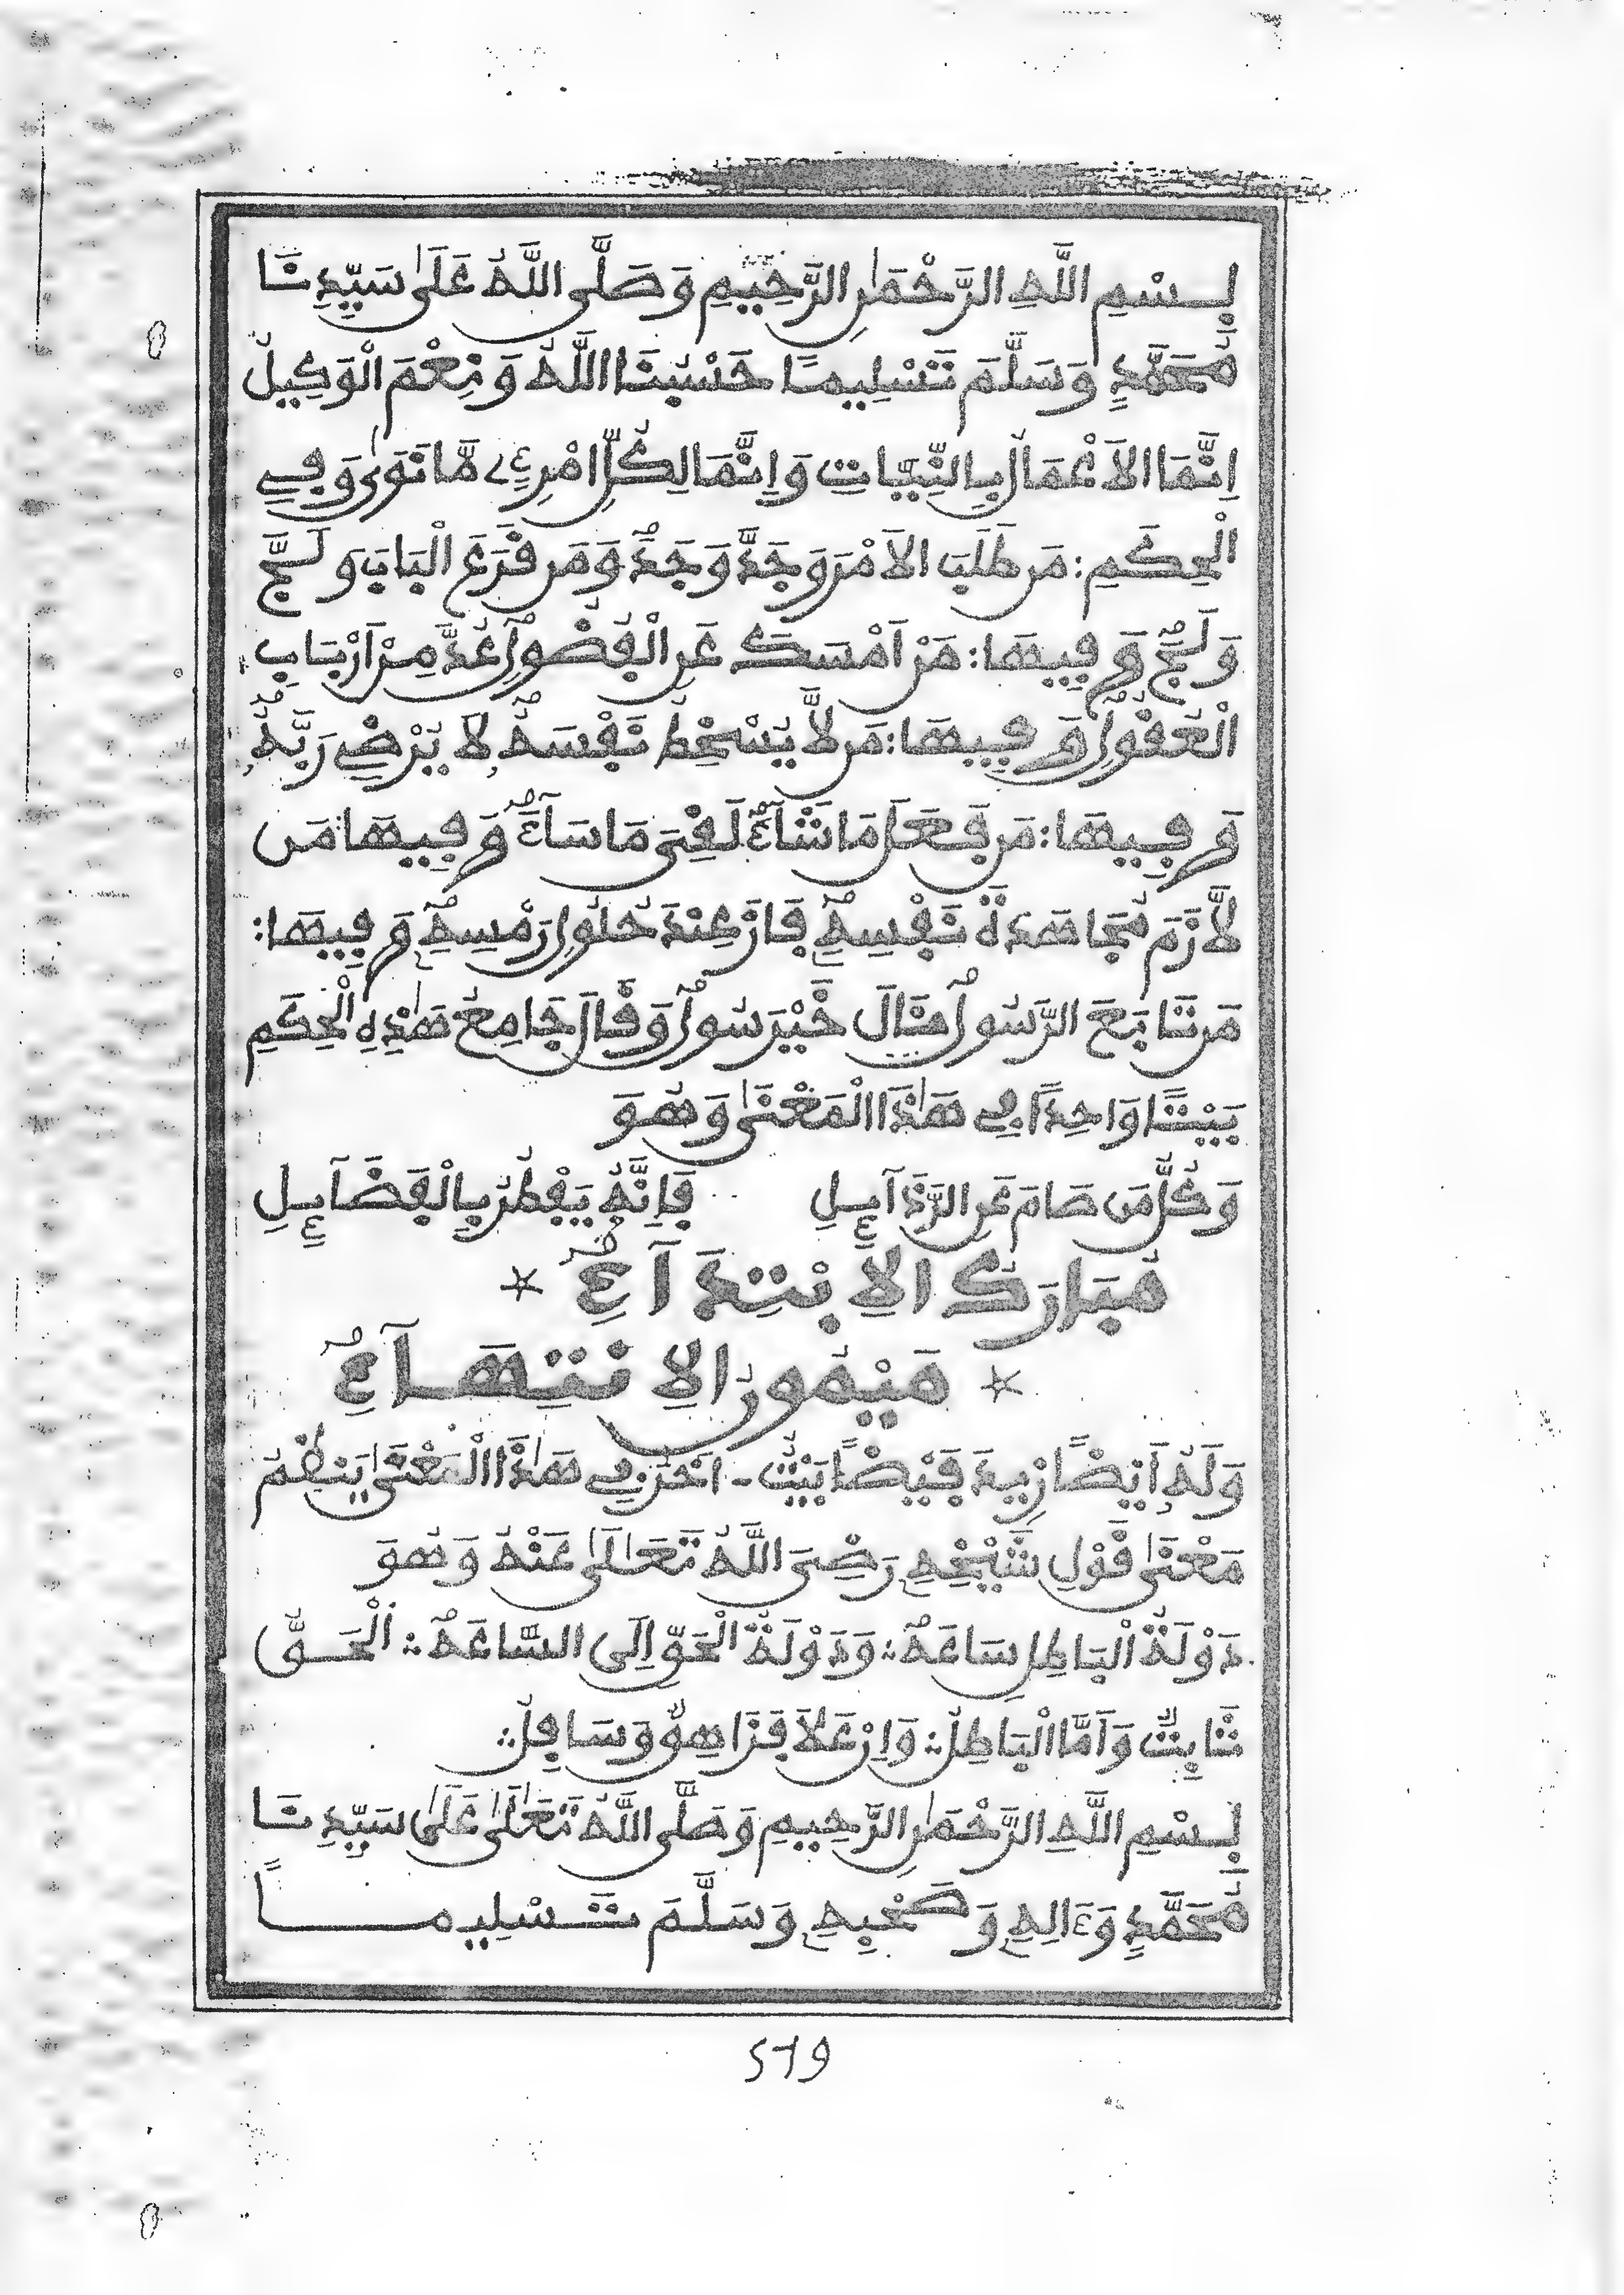 بِسْمِ اللَّهِ الرَّحْمَٰنِ الرَّحِيمِ وَصَلَّى اللَّهُ عَلَىٰ سَيِّدِنَا
مُحَمَّدٍ وَسَلَّمَ تَسْلِيمًا حَسْبُنَا اللَّهُ وَنِعْمَ الْوَكِيلُ
اِنَّمَا الاَعْمَالُ بِالنِّيَّاتِ وَاِنَّمَا لِكُلِّ امْرِئٍ مَّا نَوَىٰ وَفِي
الْحِكَمِ: مَن طَلَبَ الاَمْرَ وَجَدَّ وَجَدَهُ وَمَن قَرَعَ الْبَابَ وَلَجَّ
وَلَجَ وَفِيهَا: مَنْ اَمْسَكَ عَنِ الْفُضُولِ عُدَّ مِنْ اَرْبَابِ
الْعُقُولِ وَفِيهَا: مَن لاَّ يُسْخِطُ نَفْسَهُ لاَ يُرْضِي رَبَّهُ
وَفِيهَا: مَن فَعَلَ مَا شَآءَ لَقِيَ مَا سَآءَ وَفِيهَا مَن
لاَّزَمَ مُجَاهَدَةَ نَفْسِهِ فَازَ عِندَ حُلُولِ رَمْسِهِ وَفِيهَا:
مَن تَابَعَ الرَّسُولَ نَالَ خَيْرَ سُولٍ وَقَالَ جَامِعُ هَٰذِهِ الْحِكَمِ
بَيْتًا وَاحِدًا فِي هَٰذَا الْمَعْنَىٰ وَهُوَ
وَكُلُّ مَن صَامَ عَنِ الرَّذَآئِلِ فَاِنَّهُ يَفْطُرُ بِالْفَضَآئِلِ
مُبَارَكُ الاِبْتِدَآءِ *
* مَيْمُونُ الاِنتِهَآءِ
وَلَهُ اَيْضًا زِيدَ فَيْضًا بَيْتٌ - اخَرُ فِي هَٰذَا الْمَعْنَىٰ يَنظِمُ
مَعْنَىٰ قَوْلِ شَيْخِهِ رَضِيَ اللَّهُ تَعَالَىٰ عَنْهُ وَهُوَ
دَوْلَةُ الْبَاطِلِ سَاعَةٌ ؞ وَدَوْلَةُ الْحَقِّ اِلَى السَّاعَةِ ؞ اَلْحَقُّ
ثَابِتٌ وَاَمَّا الْبَاطِلُ ؞ وَاِنْ عَلاَ فَزَاهِقٌ وَسَافِلُ ؞
بِسْمِ اللَّهِ الرَّحْمَٰنِ الرَّحِيمِ وَصَلَّى اللَّهُ تَعَٰلَىٰ عَلَىٰ سَيِّدِنَا
مُحَمَّدٍ وَءَالِهِ وَصَحْبِهِ وَسَلَّمَ تَسْلِيمًا
519